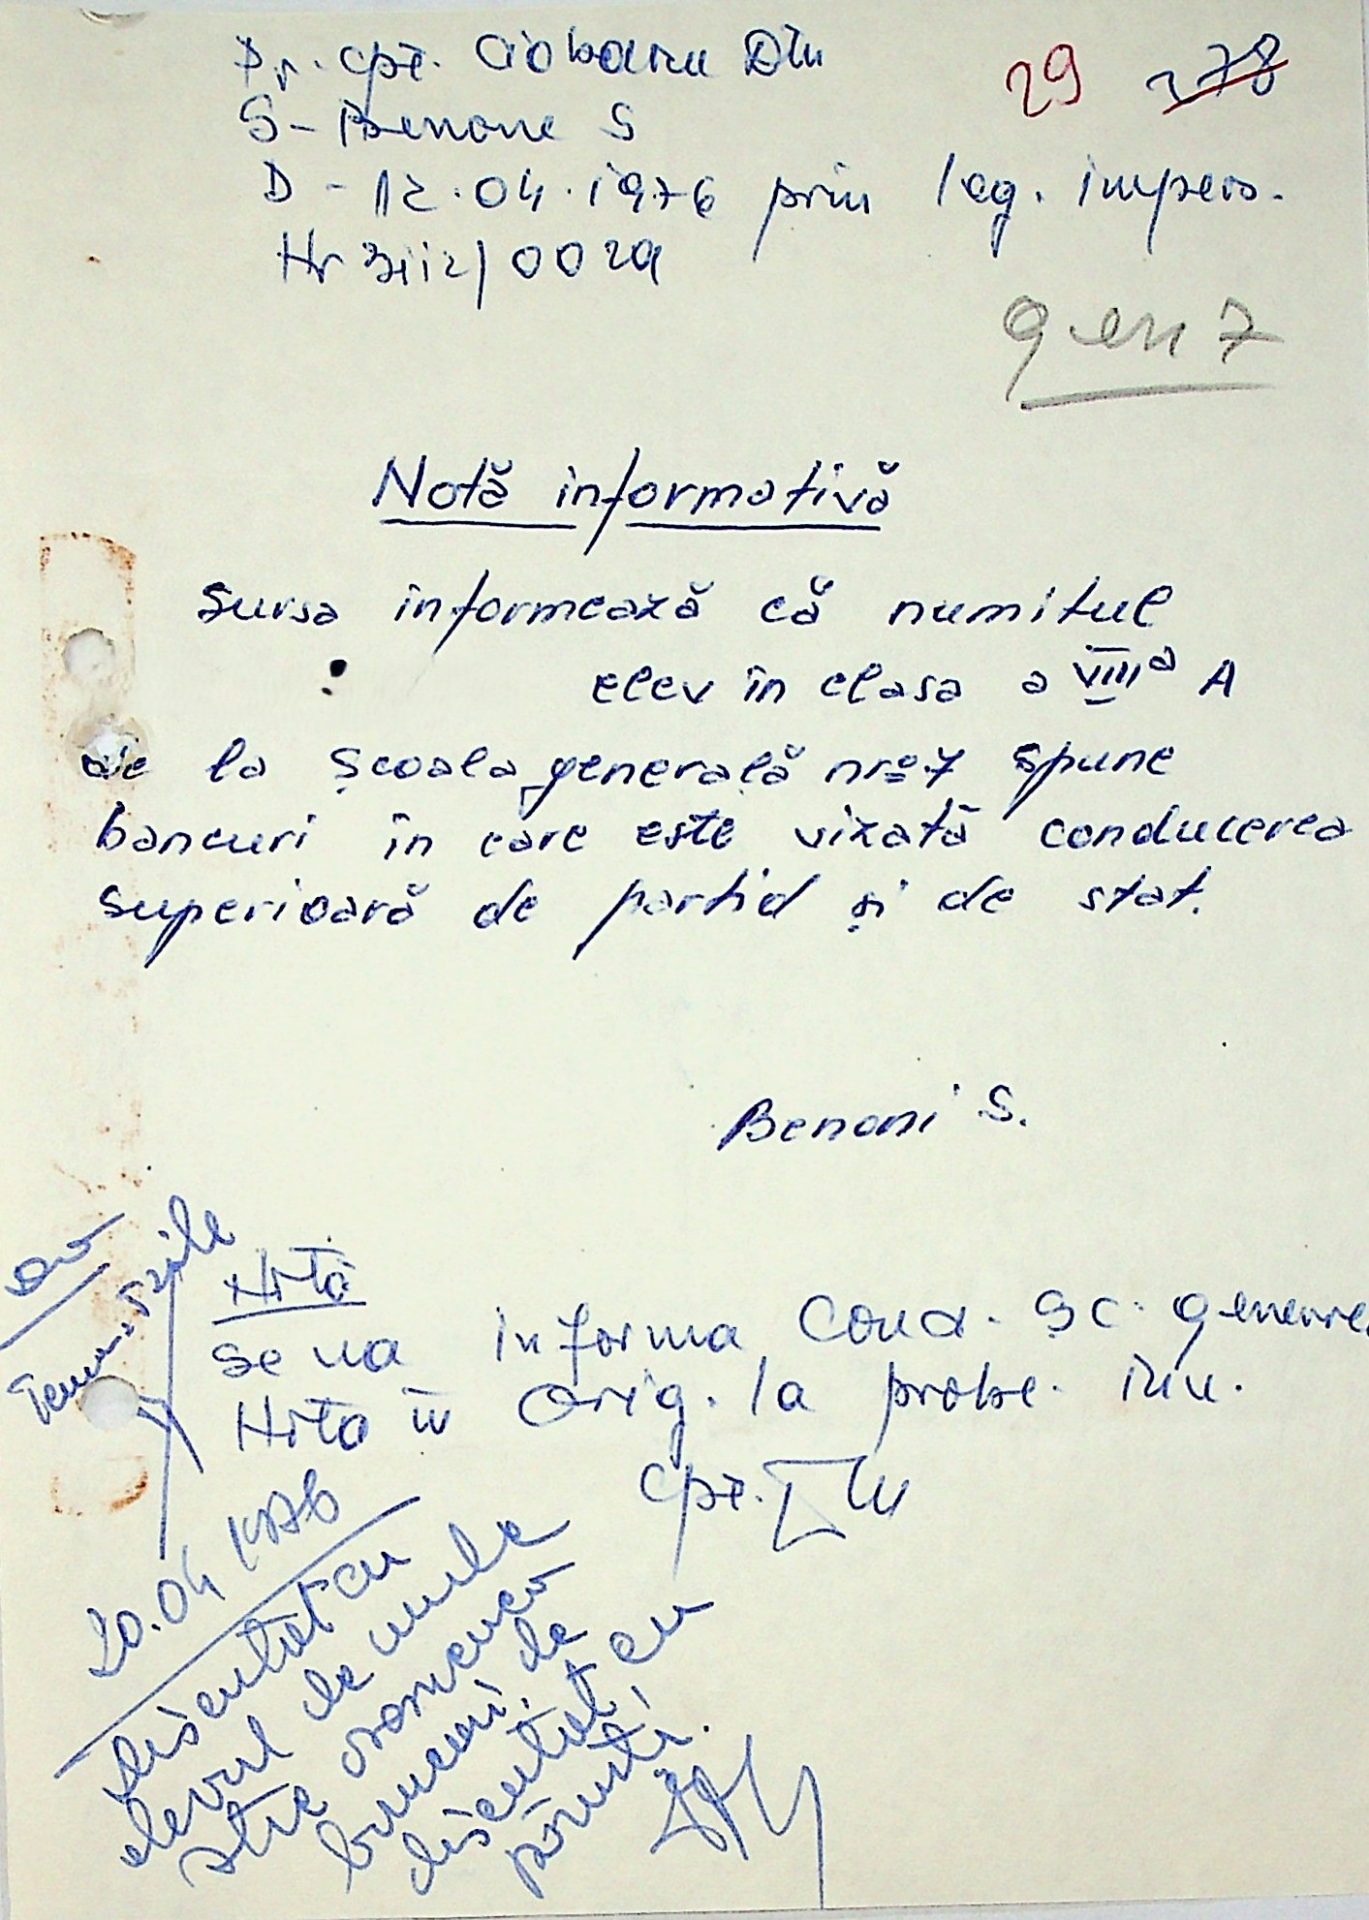 Pr. cpt. Ciobanu Dtu
29 278
S- Benone S
D - 12.04.1976 prin leg. impers.
Nr 3112/0029
gen 7
Notă informativă
Sursa informează că numitul
elev în clasa a VIIIa A
de la Școala generală nr. 7 spune
bancuri în care este vizată conducerea
superioară de partid și de stat.
Benoni S.
Nota
Se va informa cond. Șc. generale
Nota în orig. la probl. inv.
cpt.
20.04 1976
Discutat cu
elevul de unde
știe asemenea
bancuri, de
discutat cu
părinții.